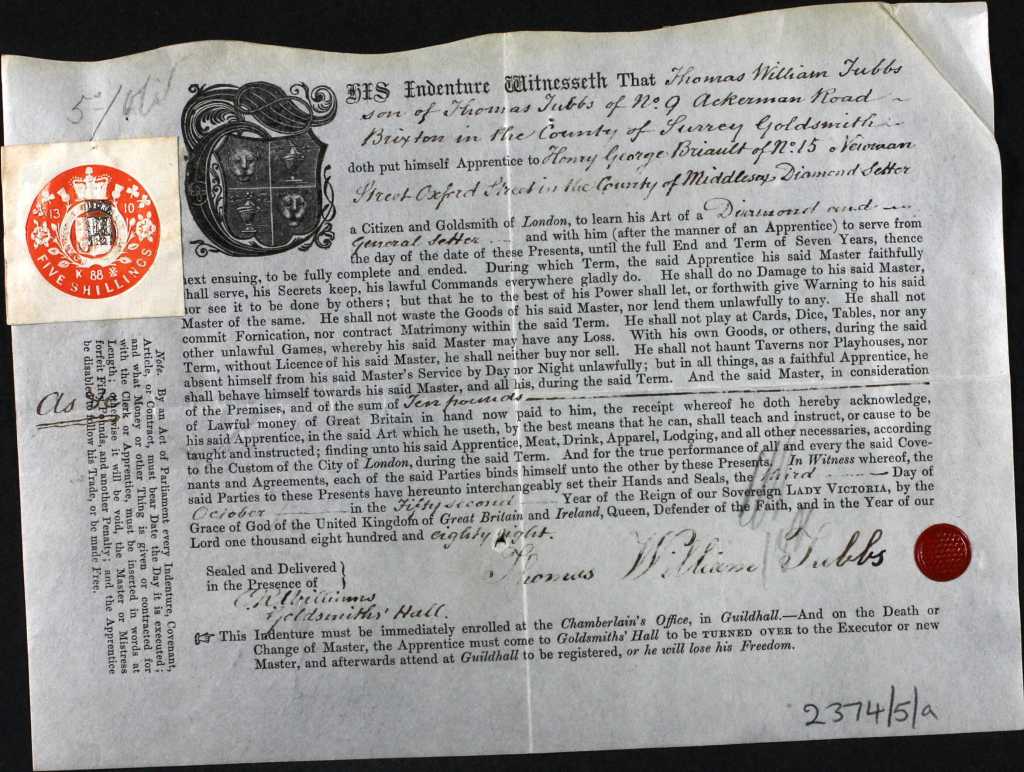 THIS Indenture Witnesseth That Thomas William Tubbs
son of Thomas Tubbs of No. 9 Ackerman Road
Brixton in the County of Surrey Goldsmith
doth put himself Apprentice to Henry George Briault of No. 15 Newman
Street Oxford Street in the County of Middlesex Diamond Setter
a Citizen and Goldsmith of London, to learn his Art of a Diamond and
General Setter and with him (after the manner of an Apprentice) to serve from
the day of the date of these Presents, until the full End and Term of Seven Years, thence
next ensuing, to be fully complete and ended. During which Term, the said Apprentice his said Master faithfully
shall serve, his Secrets keep, his lawful Commands everywhere gladly do. He shall do no Damage to his said Master,
nor see it to be done by others; but that he to the best of his Power shall let, or forthwith give Warning to his said
Master of the same. He shall not waste the Goods of his said Master, nor lend them unlawfully to any. He shall not
commit Fornication, nor contract Matrimony within the said Term. He shall not play at Cards, Dice, Tables, nor any
other unlawful Games, whereby his said Master may have any Loss. With his own Goods, or others, during the said
Term, without Licence of his said Master, he shall neither buy nor sell. He shall not haunt Taverns nor Playhouses, nor
absent himself from his said Master's Service by Day nor Night unlawfully; but in all things, as a faithful Apprentice, he
shall behave himself towards his said Master, and all his, during the said Term. And the said Master, in consideration
of the Premises, and of the sum of Ten pounds
of Lawful money of Great Britain in hand now paid to him, the receipt whereof he doth hereby acknowledge,
his said Apprentice, in the said Art which he useth, by the best means that he can, shall teach and instruct, or cause to be
taught and instructed; finding unto his said Apprentice, Meat, Drink, Apparel, Lodging, and all other necessaries, according
to the Custom of the City of London, during the said Term. And for the true performance of all and every the said Cove-
nants and Agreements, each of the said Parties binds himself unto the other by these Presents. In Witness whereof, the
said Parties to these Presents have hereunto interchangeably set their Hands and Seals, the third Day of
October in the Fifty second Year of the Reign of our Sovereign LADY VICTORIA, by the
Grace of God of the United Kingdom of Great Britain and Ireland, Queen, Defender of the Faith, and in the Year of our
Lord one thousand eight hundred and eighty eight.
Thomas William Tubbs
Sealed and Delivered
in the Presence of
Williams
Goldsmiths' Hall.
This Indenture must be immediately enrolled at the Chamberlain's Office, in Guildhall.—And on the Death or
Change of Master, the Apprentice must come to Goldsmiths' Hall to be TURNED OVER to the Executor or new
Master, and afterwards attend at Guildhall to be registered, or he will lose his Freedom.
2374/5/a
13 10
K 88
FIVE SHILLINGS
Note. By an Act of Parliament every Indenture, Covenant,
Article, or Contract, must bear Date the Day it is executed;
and what Money or other Thing is given or contracted for
with the Clerk or Apprentice, must be inserted in words at
Length, otherwise it will be void, the Master or Mistress
forfeit Fifty Pounds, and another Penalty; and the Apprentice
be disabled to follow his Trade, or be made Free.